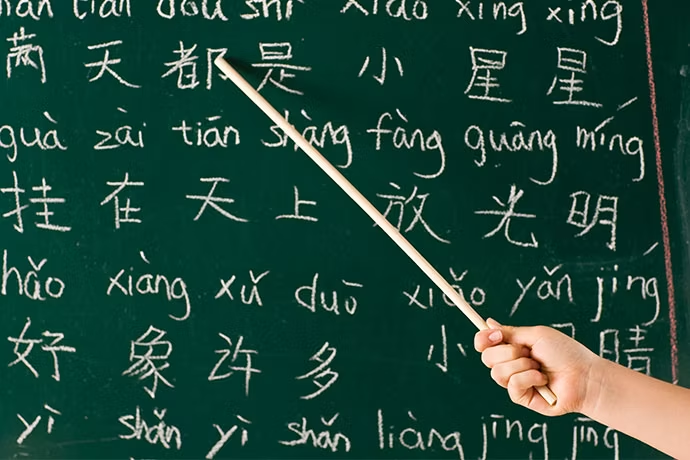 mǎn tiān dōu shì xiǎo xīng xīng
满天都是 小星星
guà zài tiān shàng fàng guāng míng
挂在天上 放光明
hǎo xiàng xǔ duō xiǎo yǎn jīng
好象许多 小 睛
yì shǎn yì shǎn liàng jīng jīng